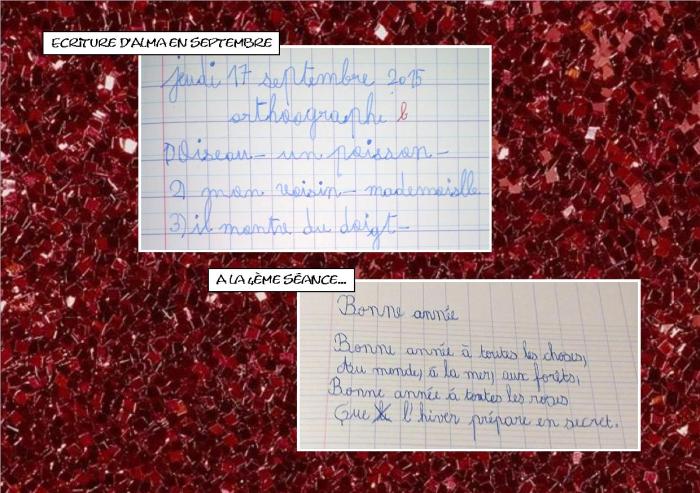 ECRITURE D'ALMA EN SEPTEMBRE
jeudi 17 septembre 2015
orthographe b
1) Oiseau - un poisson -
2) mon voisin - mademoislle
3) il montre du doigt -
A LA 4ÈME SÉANCE...
Bonne année
Bonne année à toutes les choses,
Au monde, à la mer, aux forêts,
Bonne année à toutes les roses
Que l'hiver prépare en secret.